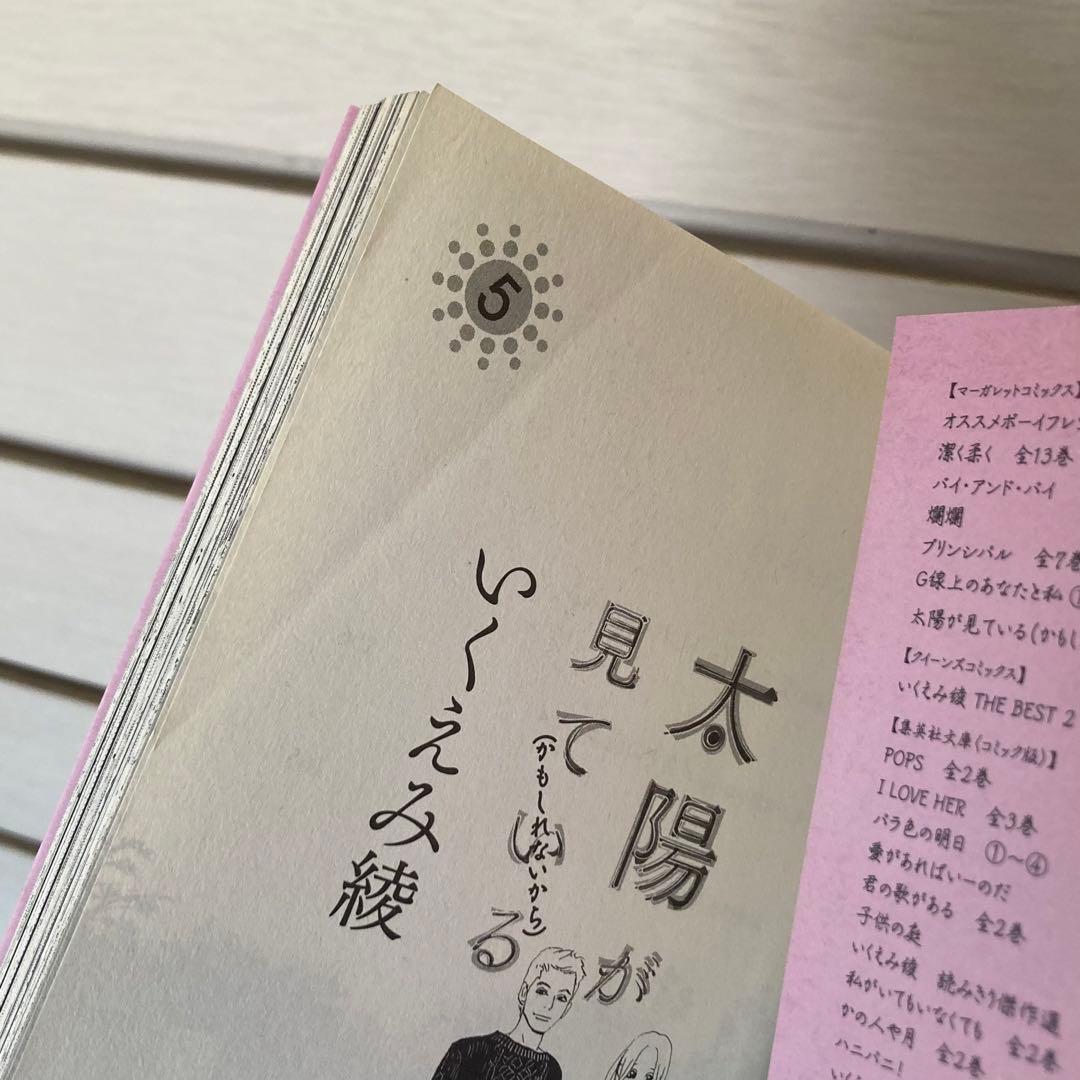 5
太陽が
見ている
(かもしれないから)
いくえみ綾
【マーガレットコミックス】
オススメボーイフレ
潔く柔く 全13巻
バイ・アンド・バイ
爛爛
プリンシパル 全7巻
G線上のあなたと私
太陽が見ている(かもし
【クイーンズコミックス】
いくえみ綾 THE BEST 2
【集英社文庫〈コミック版〉】
POPS 全2巻
I LOVE HER 全3巻
バラ色の明日 ①〜④
愛があればいーのだ
君の歌がある 全2巻
子供の庭
いくえみ綾 読みきり傑作選
私がいてもいなくても 全2巻
かの人や月 全2巻
ハニバニ!